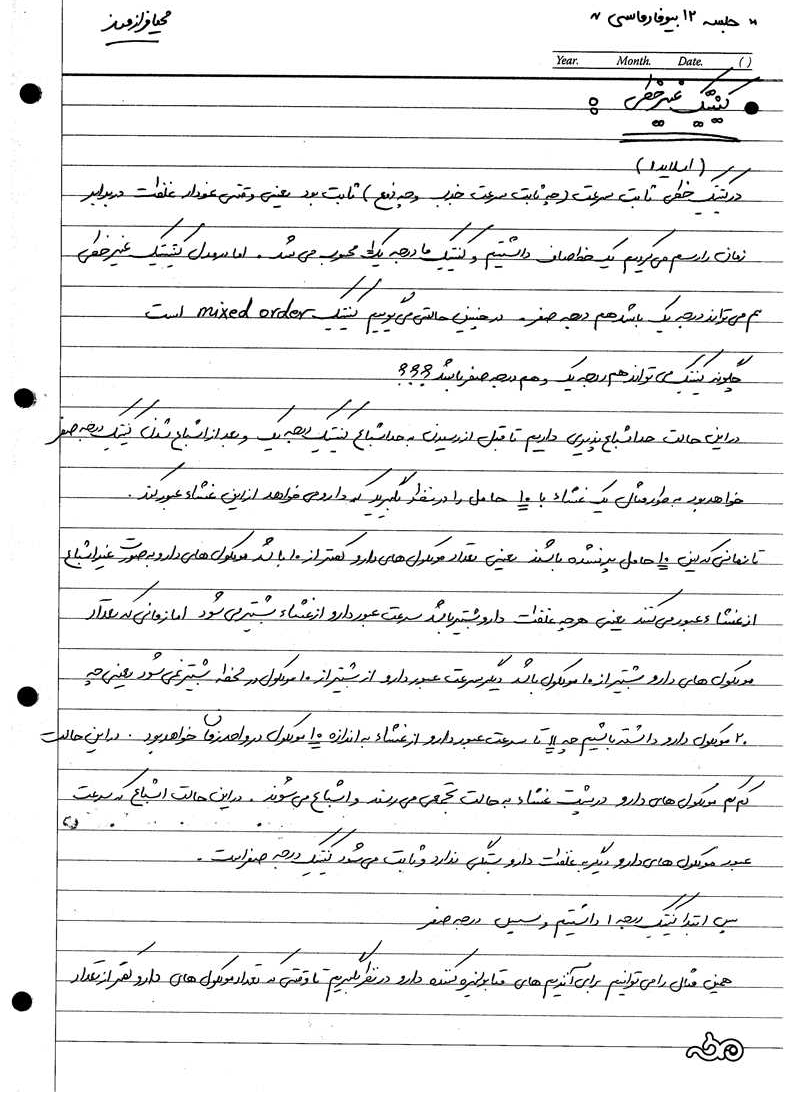 " جلسه ۱۲ بیوفارماسی "
Year. Month. Date. ( )
کینتیک غیرخطی :
( اسلاید ۱ )
در کینتیک خطی ثابت سرعت ( چه ثابت سرعت جذب و چه دفع ) ثابت بود یعنی وقتی نمودار غلظت در برابر
زمان را رسم می کردیم یک خط صاف داشتیم و کینتیک ما درجه یک محسوب می شد . اما در مدل کینتیک غیرخطی
هم می تواند درجه یک باشد هم درجه صفر . در چنین حالتی می گوییم کینتیک mixed order است
چگونه کینتیک می تواند هم درجه یک و هم درجه صفر باشد ؟؟؟
در این حالت حد اشباع پذیری داریم تا قبل از رسیدن به حد اشباع کینتیک درجه یک و بعد از اشباع شدن کینتیک درجه صفر
خواهد بود به طور مثال یک غشاء با ۱۰ حامل را در نظر بگیرید که دارو می خواهد از این غشاء عبور کند .
تا زمانی که این ۱۰ حامل پر نشده باشند یعنی تعداد مولکول های دارو کمتر از ۱۰ باشد مولکول های دارو به صورت غیراشباع
از غشاء عبور می کنند یعنی هر چه غلظت دارو بیشتر باشد سرعت عبور دارو از غشاء بیشتر می شود اما زمانی که تعداد
مولکول های دارو بیشتر از ۱۰ مولکول باشد دیگر سرعت عبور دارو از بیشتر از ۱۰ مولکول در لحظه بیشتر نمی شود یعنی چه
۲۰ مولکول دارو داشته باشیم چه ۱۱ تا سرعت عبور دارو از غشاء به اندازه ۱۰ مولکول در واحد زمان خواهد بود . در این حالت
کم کم مولکول های دارو در پشت غشاء به حالت تجمعی می رسند و اشباع می شوند . در این حالت اشباع که سرعت
عبور مولکول های دارو دیگر به غلظت دارو بستگی ندارد و ثابت می شود کینتیک درجه صفر است .
پس ابتدا کینتیک درجه ۱ داشتیم و سپس درجه صفر
همین مثال را می توانیم برای آنزیم های متابولیزه کننده دارو در نظر بگیریم تا وقتی که تعداد مولکول های دارو کمتر از تعداد